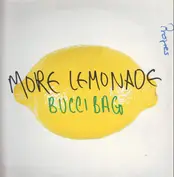 MORE LEMONADE
BUCCI BAG
Propes